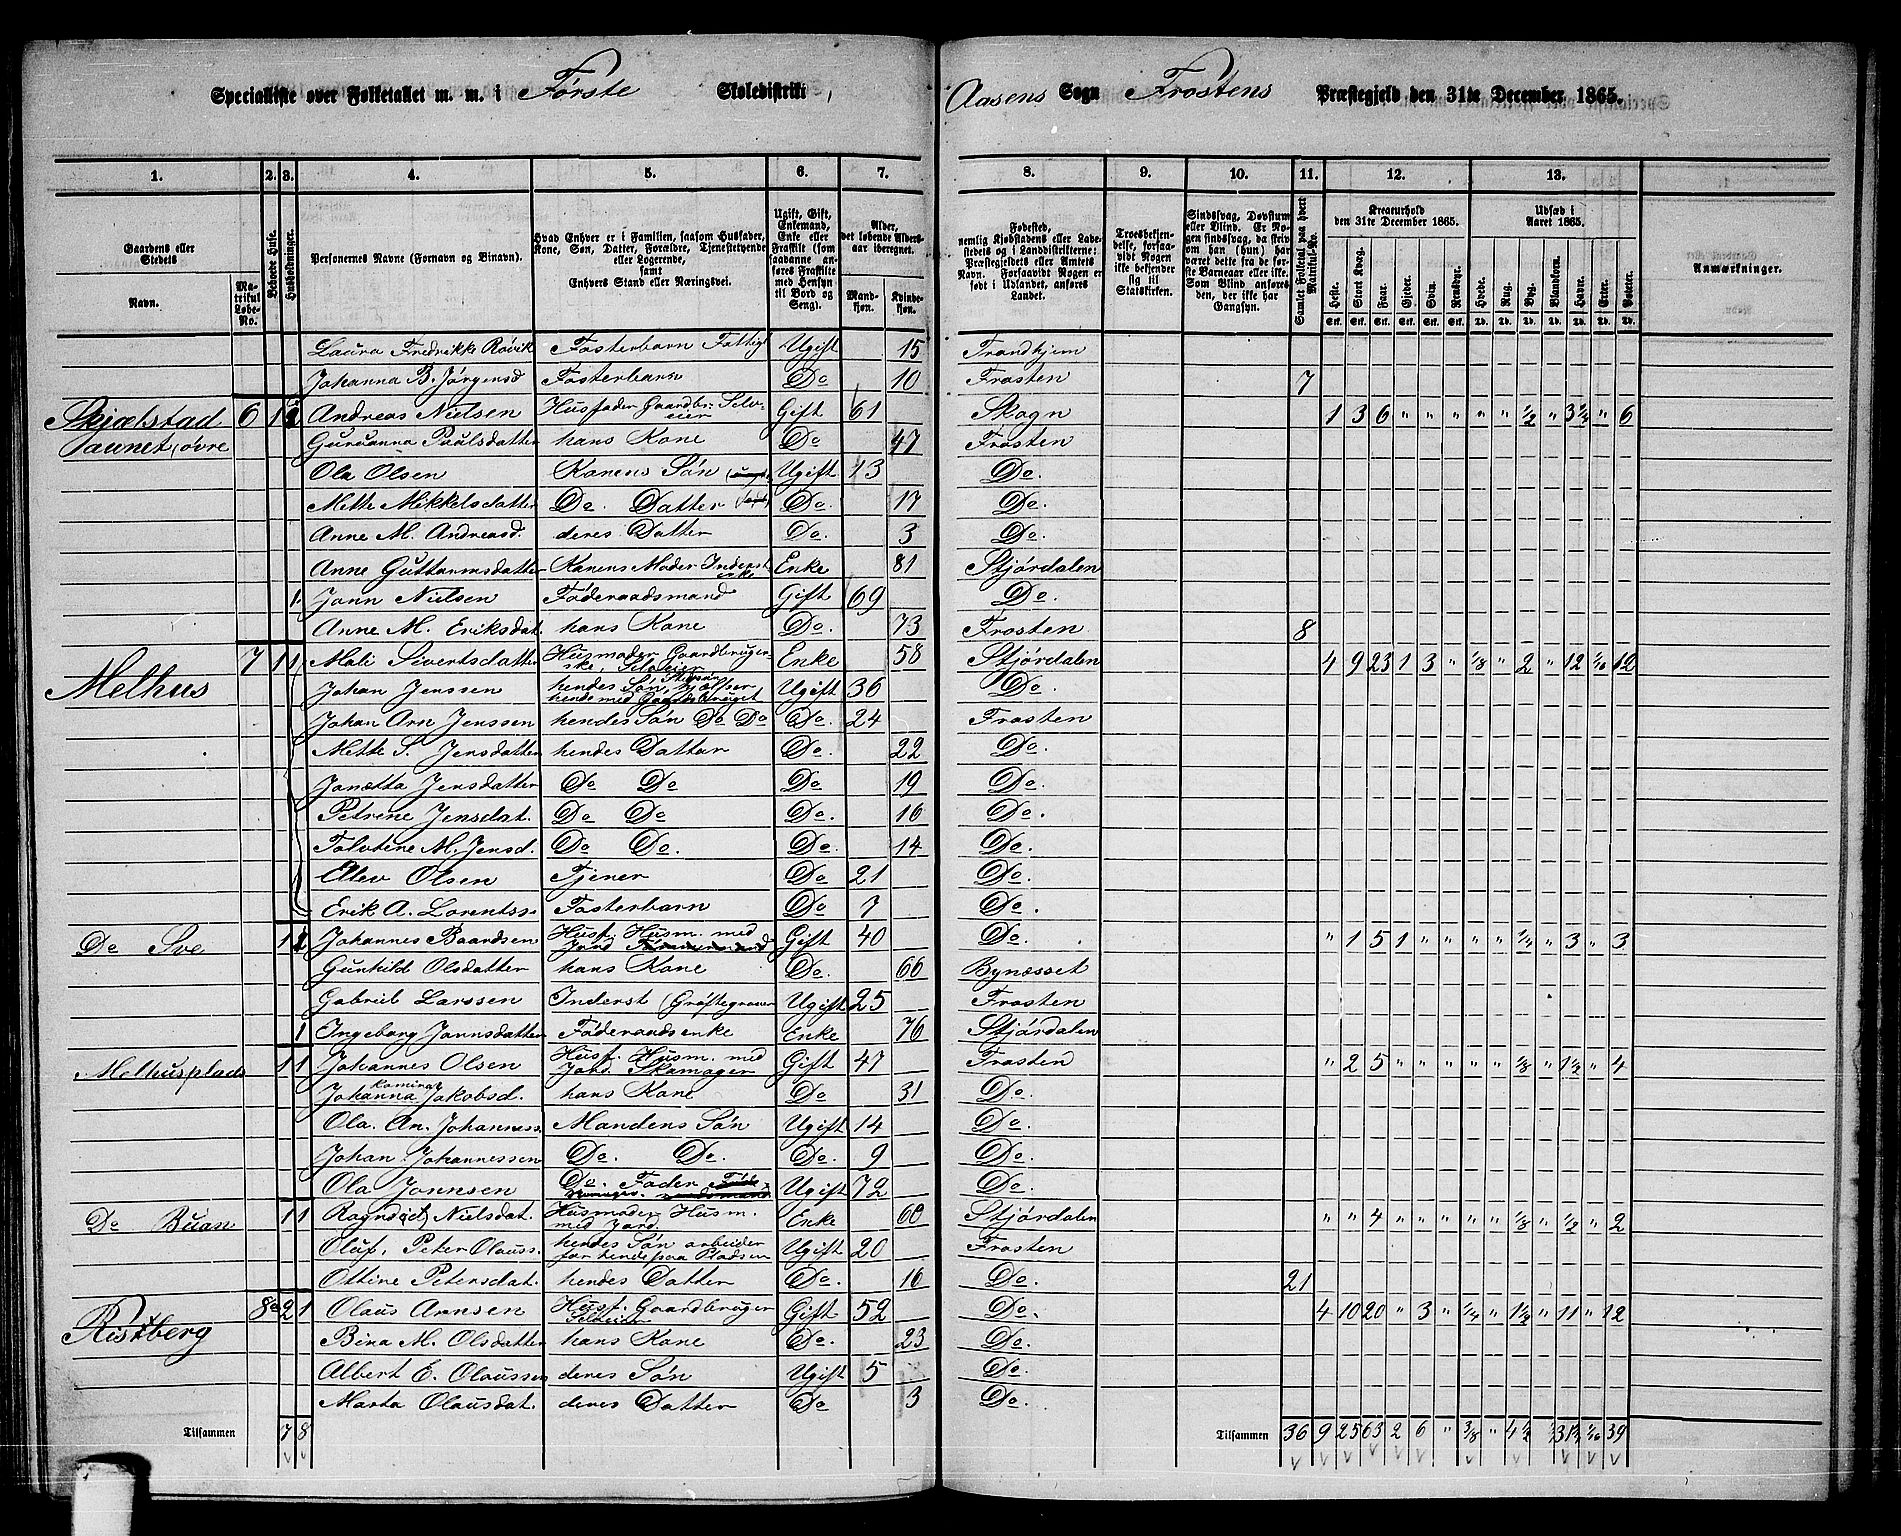 Specialliste over Folketallet m. m. i Første Skoledistrikt, Aasens Sogn Frostens Præstegjeld den 31te December 1865.
1. 2. 3. 4. 5. 6. 7. 8. 9. 10. 11. 12. 13.
Gaardens eller Stedets Navn. Matrikul Løbe-No. Beboede Huse. Husholdninger. Personernes Navne (Fornavn og Binavn). Hvad Enhver er i Familien, saasom Husfader, Kone, Søn, Datter, Forældre, Tjenestetyende eller Logerende, samt Enhvers Stand eller Næringsvei. Ugift, Gift, Enkemand, Enke eller Fraskilt (som saadanne anføres Fraskilte med Hensyn til Bord og Seng). Alder, det løbende Aldersaar iberegnet. Mandkjøn. Kvindekjøn.
Fødested, nemlig Kjøbstadens eller Ladestedets og i Landdistrikterne: Præstegjeldets eller Amtets Navn. Forsaavidt Nogen er født i Udlandet, anføres Landet. Troesbekjendelse, forsaavidt Nogen ikke bekjender sig til Statskirken. Sindssvag, Døvstum eller Blind. Er Nogen sindssvag, da skrives om han (hun) har været dette fra de første Barneaar eller ikke. Som Blind anføres den, der ikke har Gangsyn. Samlet Folketal paa hvert Matrikul-No. Kreaturhold den 31te December 1865. Udsæd i Aaret 1865. Anmærkninger.
Heste. Stort Kvæg. Faar. Gjeder. Svin. Rensdyr. Hvede. Rug. Byg. Blandkorn. Havre. Erter. Poteter.
Laura Fredrikke Røvik Fosterbarn Fattig Ugift 15 Trondhjem
Johanna B. Jørgensd Fosterbarn Do 10 Frosten 7
Skjælstad 6 1 Andreas Nielsen Husfader Gaardbr. Selveier Gift 61 Skogn 1 3 6 " " " " " 1/2 " 3 1/4 " 6
Jaunet, øvre Guruanna Paulsdatter hans Kone Do. 47 Frosten
Ola Olsen Konens Søn Ugift 13 Do.
Mette Mikkelsdatter Do. Datter Do. 17 Do.
Anne M. Andreasd. deres Datter Do. 3 Do.
Anne Guttormsdatter Konens Moder Inderste Enke 81 Stjørdalen
1 Jonn Nielsen Føderaadsmand Gift 69 Do.
Anne M. Eriksdat. hans Kone Do. 73 Frosten 8
Melhus 7 1 1 Mali Sivertsdatter Husmoder Gaardbrugerske, Selveier Enke 58 Stjørdalen 4 9 23 1 3 " 1/8 " 2 " 12 1/16 12
Johan Jenssen hendes Søn, hjælper hende med Gaardsbruget Ugift 36 Do.
Johan Arn Jenssen hendes Søn Do Do Do. 24 Frosten
Mette S. Jensdatter hendes Datter Do. 22 Do.
Jonetta Jensdatter Do Do Do 19 Do.
Petrine Jensdat. Do Do Do. 16 Do.
Tolvtine M. Jensd. Do Do. Do. 14 Do.
Ellev Olsen Tjener Do 21 Do.
Erik A. Lorentss. Fosterbarn Do 7 Do.
Do Sve 1 1 Johannes Baardsen Husf. Husm. med Jord Gift 40 Do. " 1 5 1 " " " " 1/4 " 3 " 3
Gunhild Olsdatter hans Kone Do. 66 Bynæsset
Gabriel Larssen Inderst (Grøftegraver Ugift 25 Frosten
1 Ingeborg Jonnsdatter Føderaadsenke Enke 76 Stjørdalen
Melhusplads 1 1 Johannes Olsen Husf. Husm. med Jord Skomager Gift 47 Frosten " 2 5 " " " " " 1/8 " 1 1/2 " 4
Johanna Jakobsd. hans Kone Do 31 Do.
Ola. An. Johanness. Mandens Søn Ugift 14 Do.
Johan Johannessen Do. Do. Do. 9 Do.
Ola Jonnsen Do. Fader Ugift 72 Do.
Do Buan 1 1 Ragndid Nielsdat. Husmoder Husm. med Jord Enke 60 Stjørdalen " " 4 " " " " " 1/8 " 1/2 " 2
Oluf. Peter Olauss. hendes Søn arbeider for hende paa Pladsen Ugift 20 Frosten
Ottine Petersdat. hendes Datter Do. 16 Do. 21
Ristberg 8a 2 1 Olaus Arnsen Husf. Gaardbruger Selveier Gift 52 Do. 4 10 20 " 3 " 1/4 " 1 1/2 " 11 " 12
Bina M. Olsdatter hans Kone Do. 23 Do.
Albert E. Olaussen deres Søn Ugift 5 Do.
Marta Olausdat. deres Datter Do 3 Do.
Tilsammen 7 8 Tilsammen 36 9 25 63 2 6 " 3/8 " 4 1/2 " 31 1/4 1/16 39